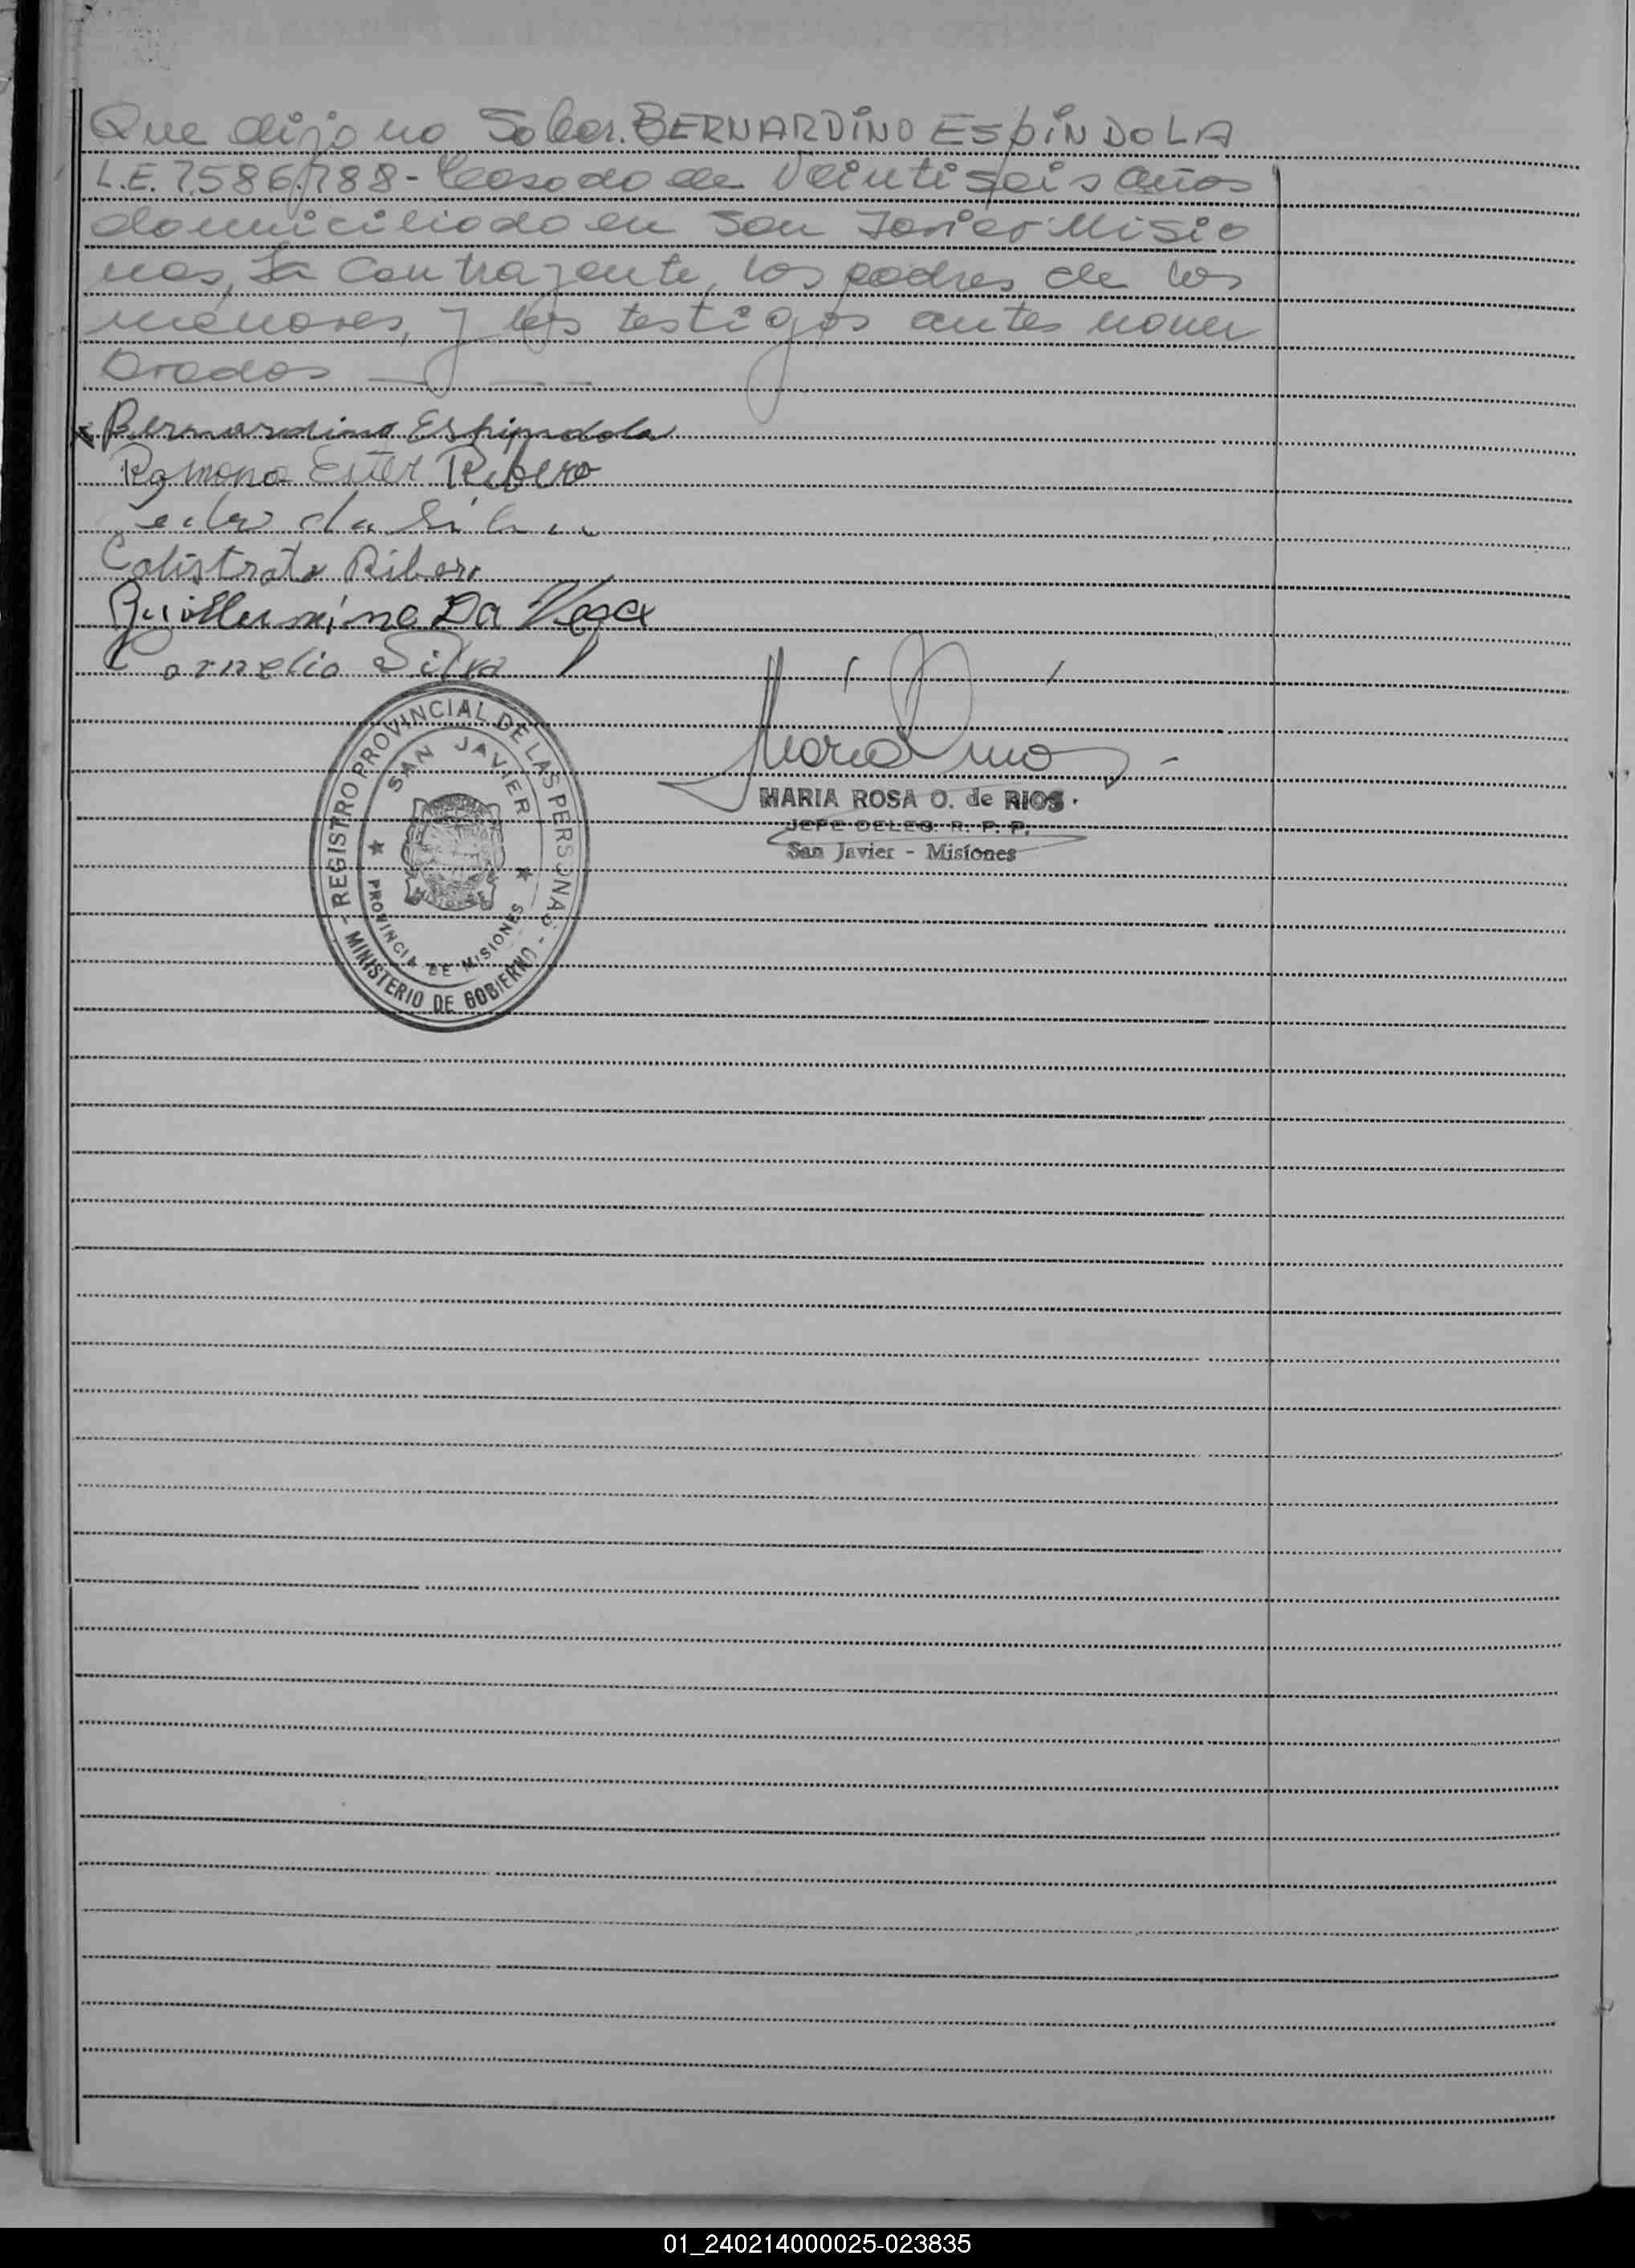 Que dijo no Saber. BERNARDINO ESPINDOLA
L.E. 7.586.788 - Casado de Veintiseis años
domiciliado en San Javier Misio
nes, La Contrayente, los padres de los
menores, y los testigos antes nom
brados
Bernardino Espindola
Ramona Ester Ribero
da Silva
Calistrato Ribero
Guillermina Da Rosa
Cornelio Silva
MARIA ROSA O. de RIOS.
JEFE DELEG. R. P. P.
San Javier - Misiones
- REGISTRO PROVINCIAL DE LAS PERSONAS -
MINISTERIO DE GOBIERNO
SAN JAVIER
PROVINCIA DE MISIONES
01_240214000025-023835